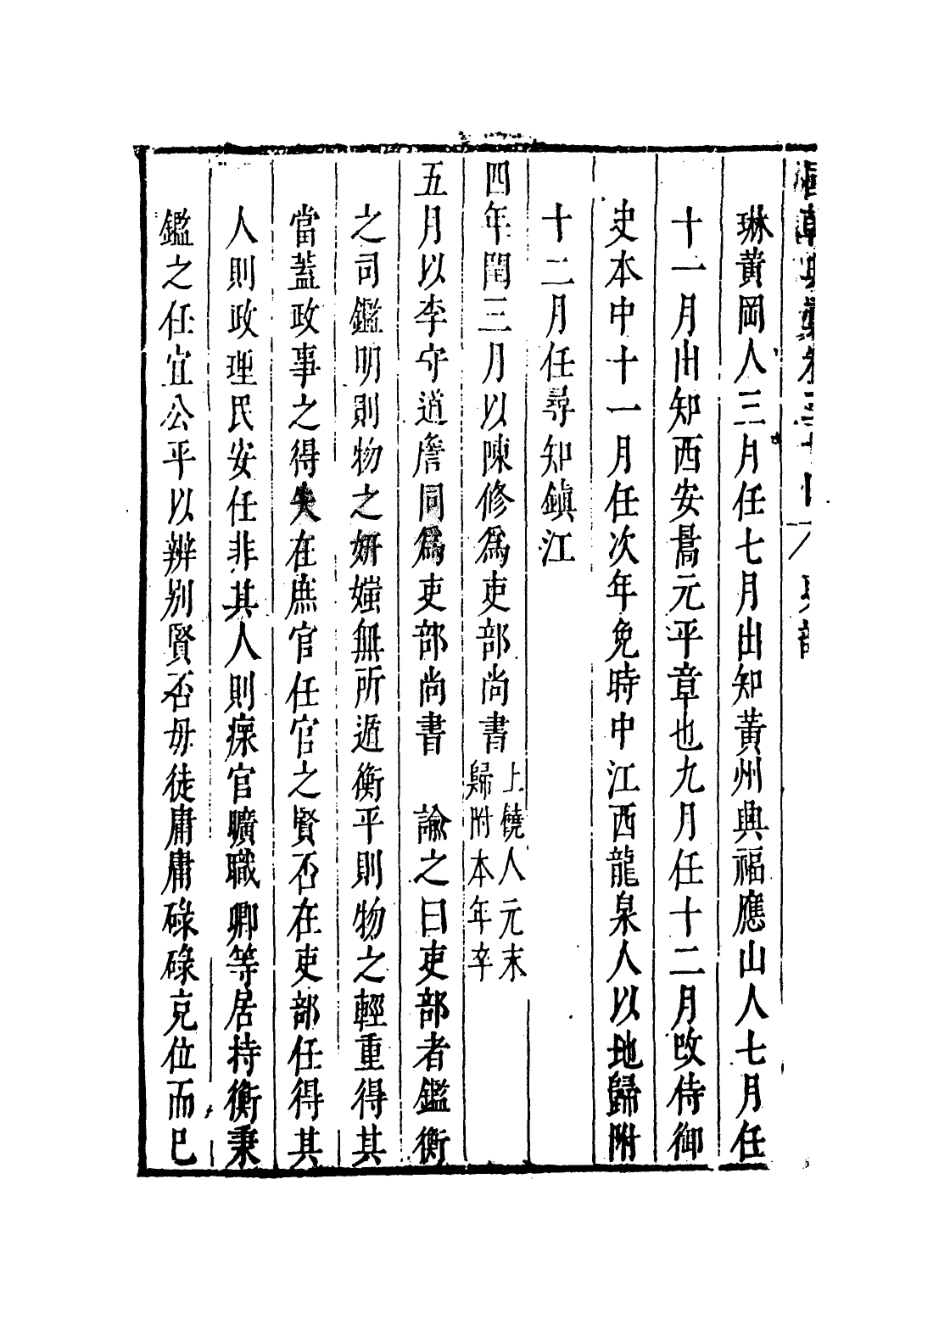 琳黃岡人三月任七月出知黃州興福應山人七月任
十一月出知西安暠元平章也九月任十二月改侍御
史本中十一月任次年免時中江西龍泉人以地歸附
十二月任尋知鎮江
四年閏三月以陳修爲吏部尚書上饒人元末
歸附本年卒
五月以李守道詹同爲吏部尚書 諭之曰吏部者鑑衡
之司鑑明則物之妍媸無所遁衡平則物之輕重得其
當蓋政事之得失在庶官任官之賢否在吏部任得其
人則政理民安任非其人則瘝官曠職卿等居持衡秉
鑑之任宜公平以辨別賢否毋徒庸庸碌碌克位而已